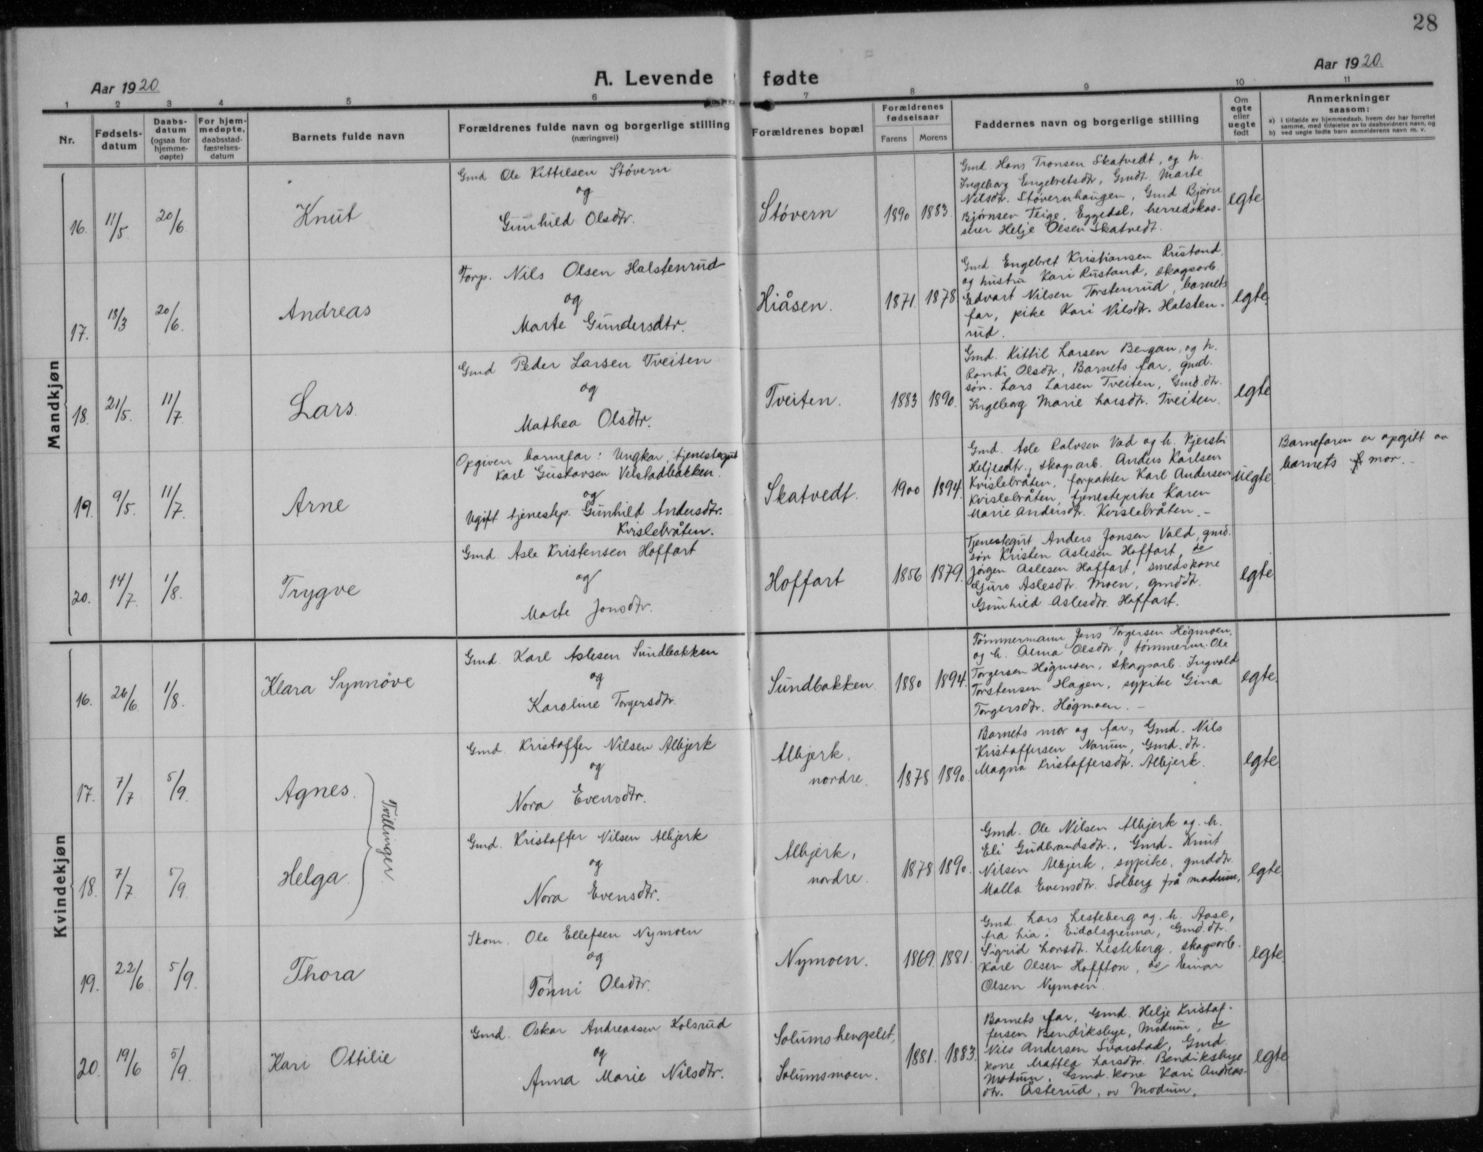 28
Aar 1920
A. Levende fødte
Aar 1920.
1 2 3 4 5 6 7 8 9 10 11
Nr.
Fødsels-
datum
Daabs-
datum
(ogsaa for
hjemme-
døpte)
For hjem-
medøpte,
daabsstad-
fæstelses-
datum
Barnets fulde navn
Forældrenes fulde navn og borgerlige stilling
(næringsvei)
Forældrenes bopæl
Forældrenes
fødselsaar
Farens Morens
Faddernes navn og borgerlige stilling
Om
egte
eller
uegte
født
Anmerkninger
saasom:
a) i tilfælde av hjemmedaab, hvem der har forrettet
samme, med tilføielse av to daabsvidners navn, og
b) ved uegte fødte barn anmelderens navn m. v.
Mandkjøn
16. 11/5 20/6 Knut
Gmd Ole Kittilsen Støvern
og
Gunhild Olsdtr.
Støvern
1890 1883
Gmd Hans Tronsen Skatvedt, og h.
Ingeborg Engebretsdtr, Gmdt. Marte
Nilsdtr. Støvernhaugen, Gmd Bjørn
Bjørnsen Teige, Eggedal, herredskas-
serer Helje Olsen Skatvedt.
egte
17. 18/3 20/6. Andreas
Forp. Nils Olsen Halstenrud
og
Marte Gundersdtr.
Hiåsen.
1871. 1878
Gmd Engebret Kristiansen Rustand
og hustru Kari Rustand, skogsarb.
Edvart Nilsen Torstenrud, barnets
far, pike Kari Nilsdtr. Halsten-
rud.
egte
18. 21/5. 11/7 Lars
Gmd Peder Larsen Tveiten
og
Mathea Olsdtr.
Tveiten.
1883 1890.
Gmd. Kittil Larsen Bergan, og h.
Randi Olsdtr, Barnets far, gmd.
søn. Lars Larsen Tveiten, Gmd.dtr.
Ingeborg Marie Larsdtr. Tveiten.
egte
19. 9/5. 11/7. Arne
Opgiven barnefar: Ungkar, tjenestegut
Karl Gustavsen Velstadbakken.
og
Ugift tjenestep. Gunhild Andersdtr.
Kvislebråten.
Skatvedt.
1900 1894.
Gmd. Asle Halvsen Vad og h. Kjersti
Heljesdtr., skogsarb. Anders Karlsen
Kvislebråten, forpakter Karl Andersen
Kvislebråten, tjenestepike Karen
Marie Andersdtr. Kvislebråten. -
uegte
Barnefaren er opgitt av
barnets mor. -
20. 14/7. 1/8. Trygve
Gmd Asle Kristensen Hoffart
og
Marte Jonsdtr.
Hoffart
1856 1879.
Tjenestegut Anders Jonsen Vald, gmd.
søn Kristen Aslesen Hoffart, do
Jørgen Aslesen Hoffart, smedskone
Guro Aslesdtr Moen, gmddt.
Gunhild Aslesdtr. Hoffart.
egte
Kvindekjøn
16. 26/6 1/8. Klara Synnøve
Gmd. Karl Aslesen Sundbakken
og
Karoline Torgersdtr.
Sundbakken.
1880 1894.
Tømmermann Jens Torgersen Høgmoen,
og h. Alma Olsdtr, tømmerm. Ole
Torgersen Høgmoen, skogsarb. Ingvald
Torstensen Hagen, sypike Gina
Torgersdtr. Høgmoen. -
egte
17. 7/7 5/9. Agnes.
Gmd. Kristoffer Nilsen Albjerk
og
Nora Evensdtr.
Albjerk,
nordre.
1878 1890.
Barnets mor og far, Gmd. Nils
Kristoffersen Narum, Gmd.dtr.
Magna Kristoffersdtr. Albjerk.
egte
Tvillinger.
18. 7/7 5/9. Helga.
Gmd. Kristoffer Nilsen Albjerk
og
Nora Evensdtr.
Albjerk,
nordre.
1878 1890.
Gmd. Ole Nilsen Albjerk og h.
Eli Gudbrandsdtr., Gmd. Knut
Nilsen Albjerk, sypike, gmddtr.
Malla Evensdtr. Solberg frå Modum,
egte
19. 22/6 5/9. Thora
Skom. Ole Ellefsen Nymoen
og
Tønni Olsdtr.
Nymoen.
1869 1881.
Gmd Lars Lesteberg og h. Aase,
fra Lia i Eidalsgrenna, Gmd.dt.
Sigrid Larsdt. Lesteberg, skogsarb.
Karl Olsen Hoffton, do Einar
Olsen Nymoen.
egte
20. 19/6 5/9. Kari Ottilie
Gmd. Oskar Andreassen Kolsrud
og
Anna Marie Nilsdtr.
Solumshengslet,
Solumsmoen.
1881. 1883.
Barnets far, Gmd. Helje Kristof-
fersen Bendiksbye, Modum, do
Nils Andersen Svarstad, Gmd
kone Mathea Larsdtr. Bendiksbye
Modum, Gmd. kone Kari Andreas-
dtr. Åsterud, av Modum.
egte